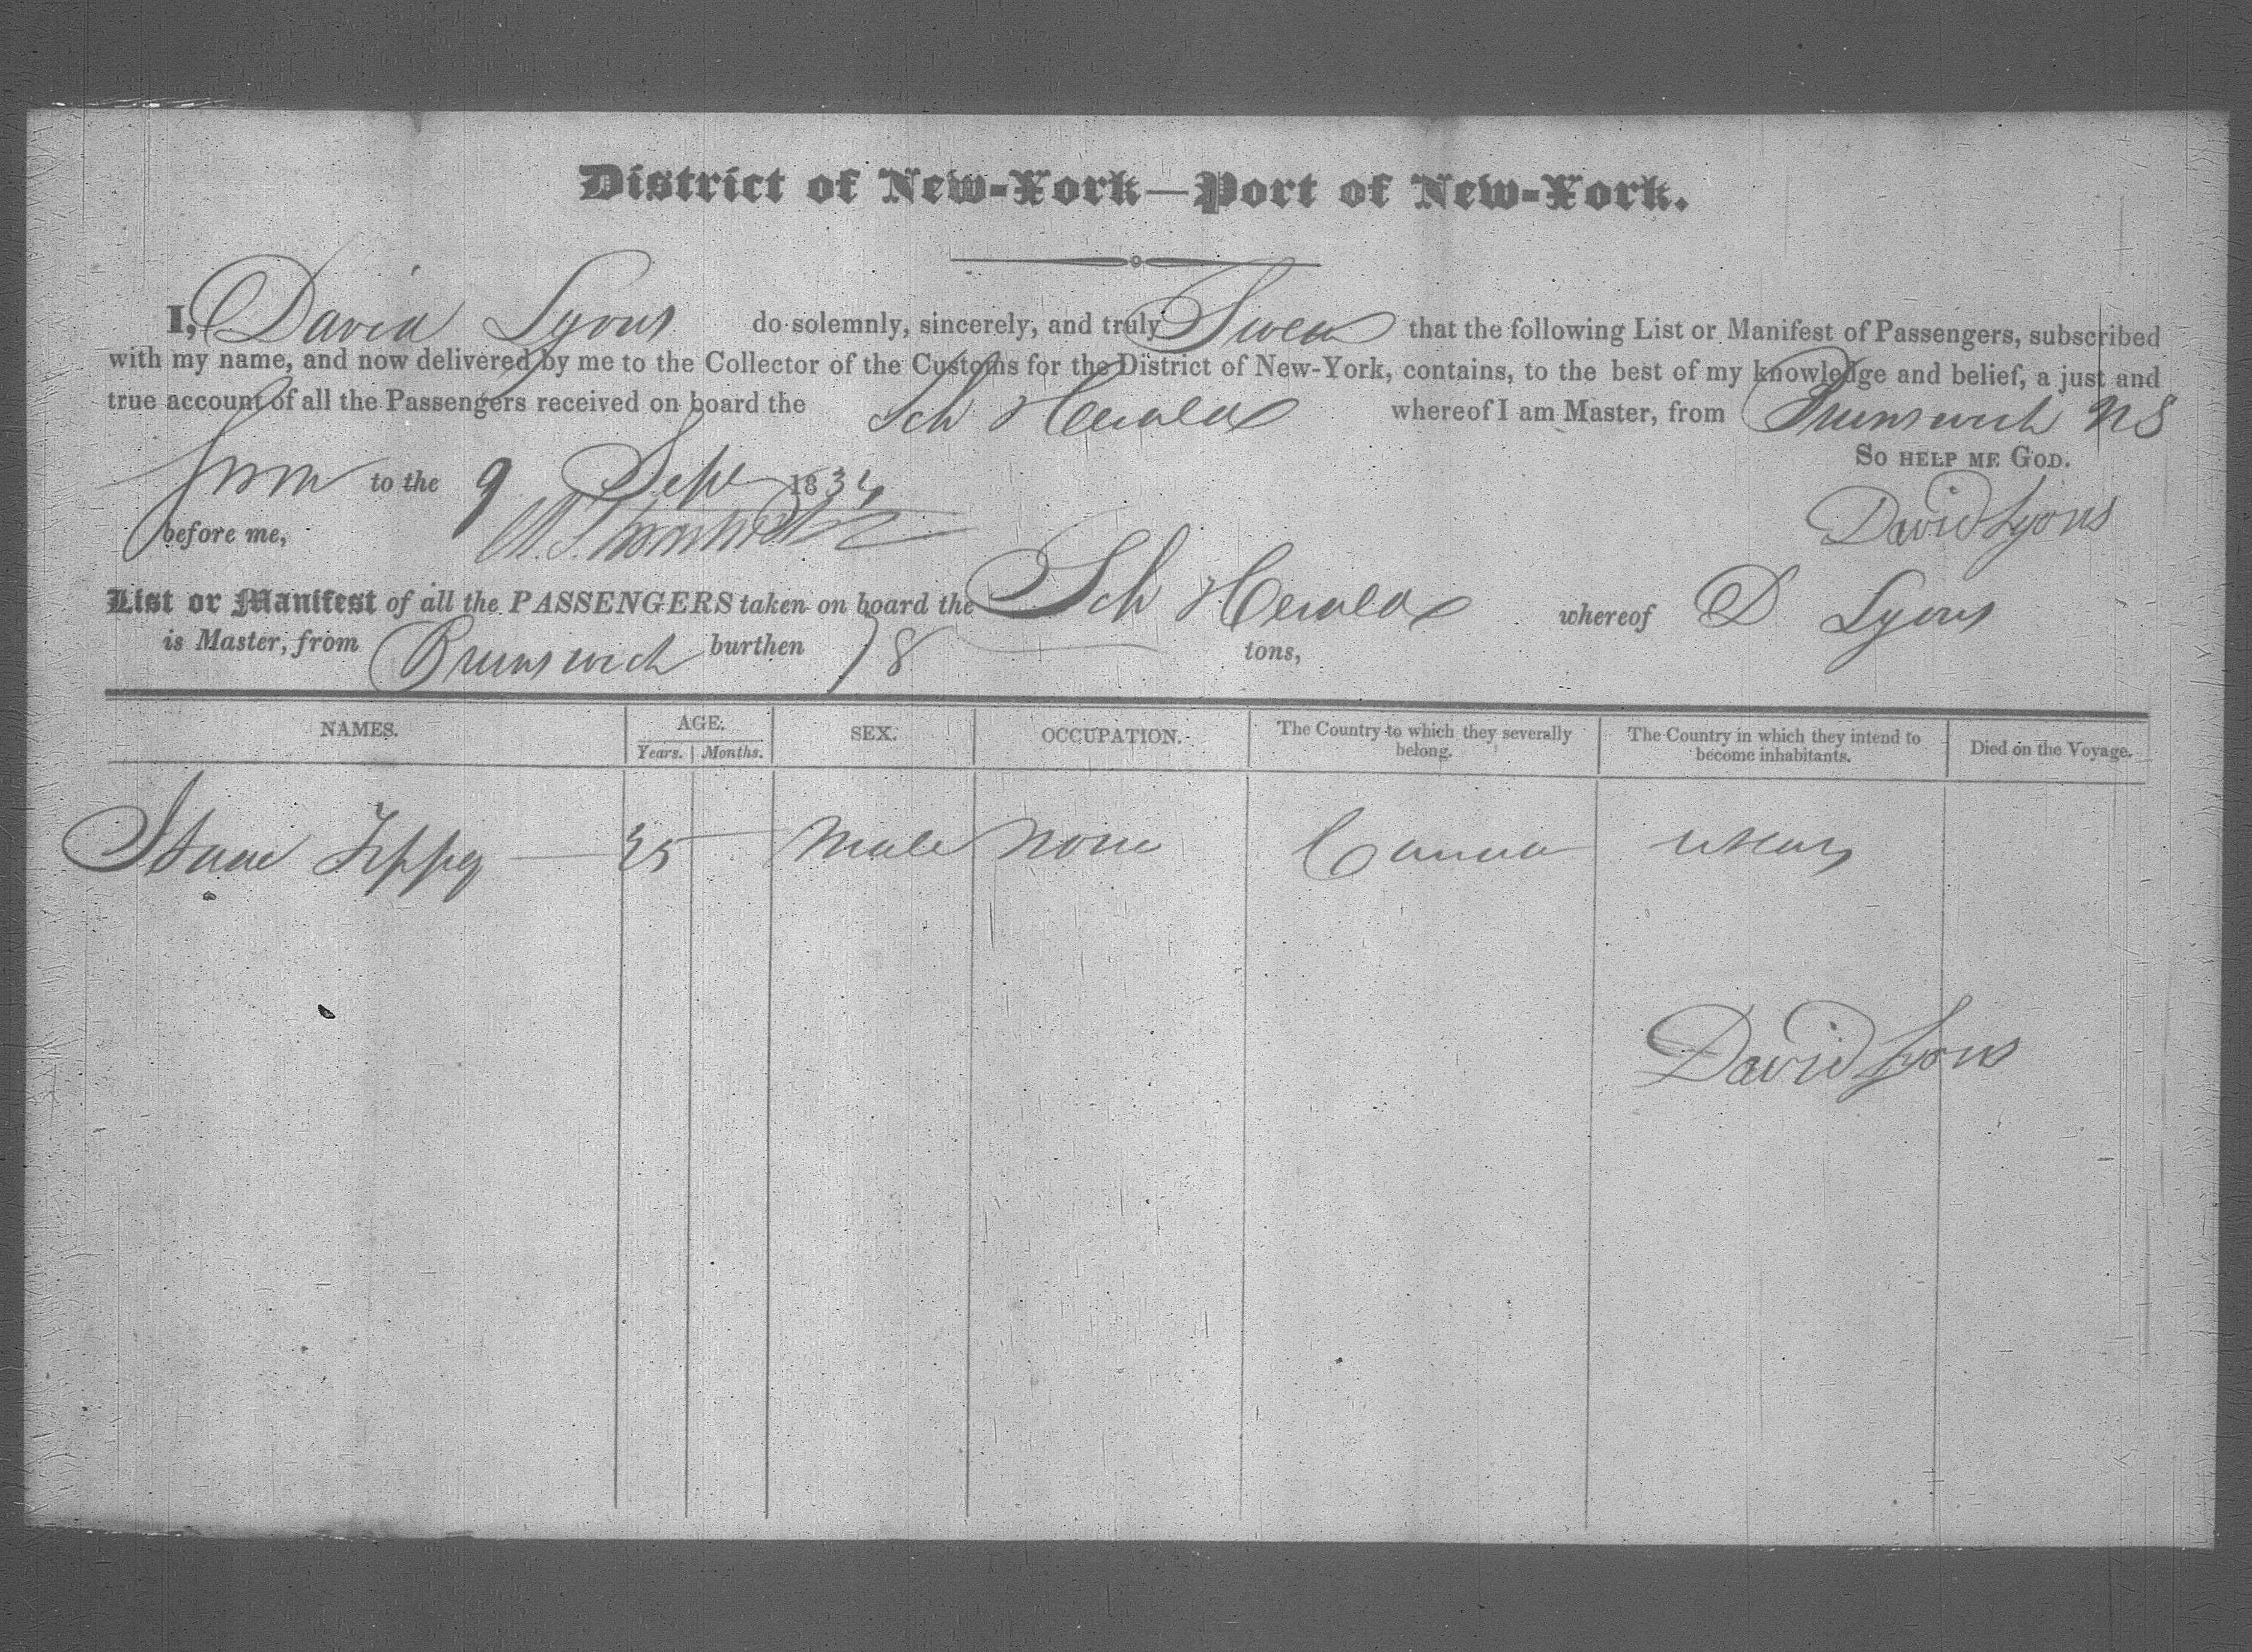 District of New-York—Port of New-York.
I, David Lyons do solemnly, sincerely, and truly Swear that the following List or Manifest of Passengers, subscribed
with my name, and now delivered by me to the Collector of the Customs for the District of New-York, contains, to the best of my knowledge and belief, a just and
true account of all the Passengers received on board the Sch Herald whereof I am Master, from Brunswick NS
So HELP ME GOD.
Sworn to the 9 Sept 1834
David Lyons
before me,
List or Manifest of all the PASSENGERS taken on board the Sch Herald whereof D Lyons
is Master, from Brunswick burthen 78 tons,
NAMES. AGE. SEX. OCCUPATION. The Country to which they severally belong. The Country in which they intend to become inhabitants. Died on the Voyage.
Years. Months.
Isaac 35 Male None
David Lyons